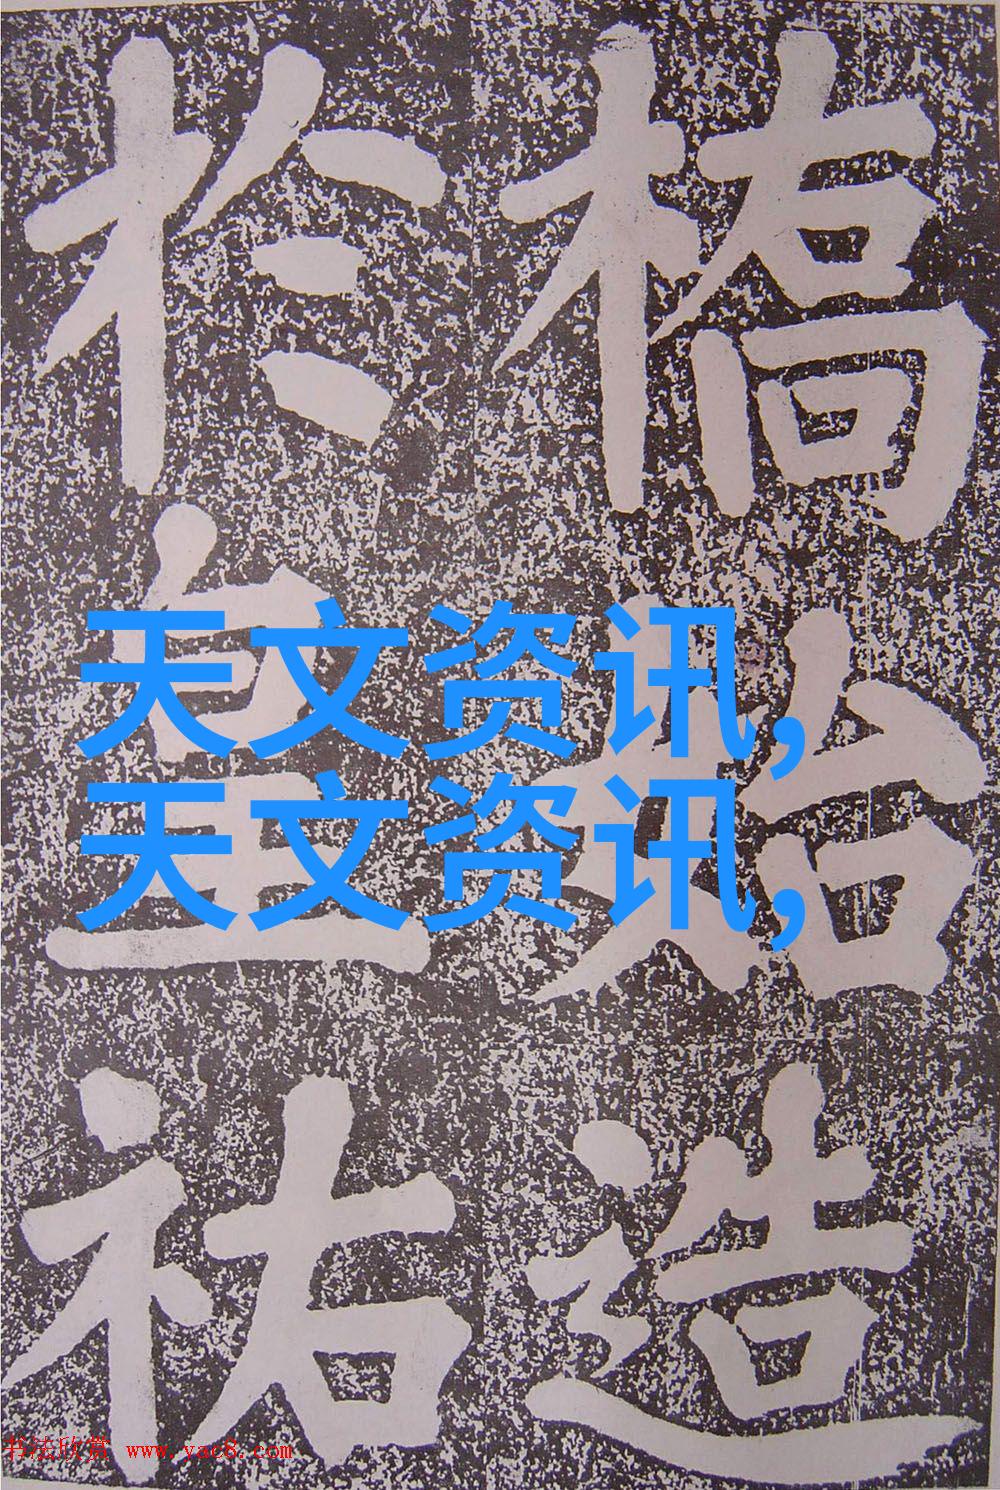 橋始造
於皇祐
天文资讯,
天文资讯,
书法欣赏 www.yac8.com